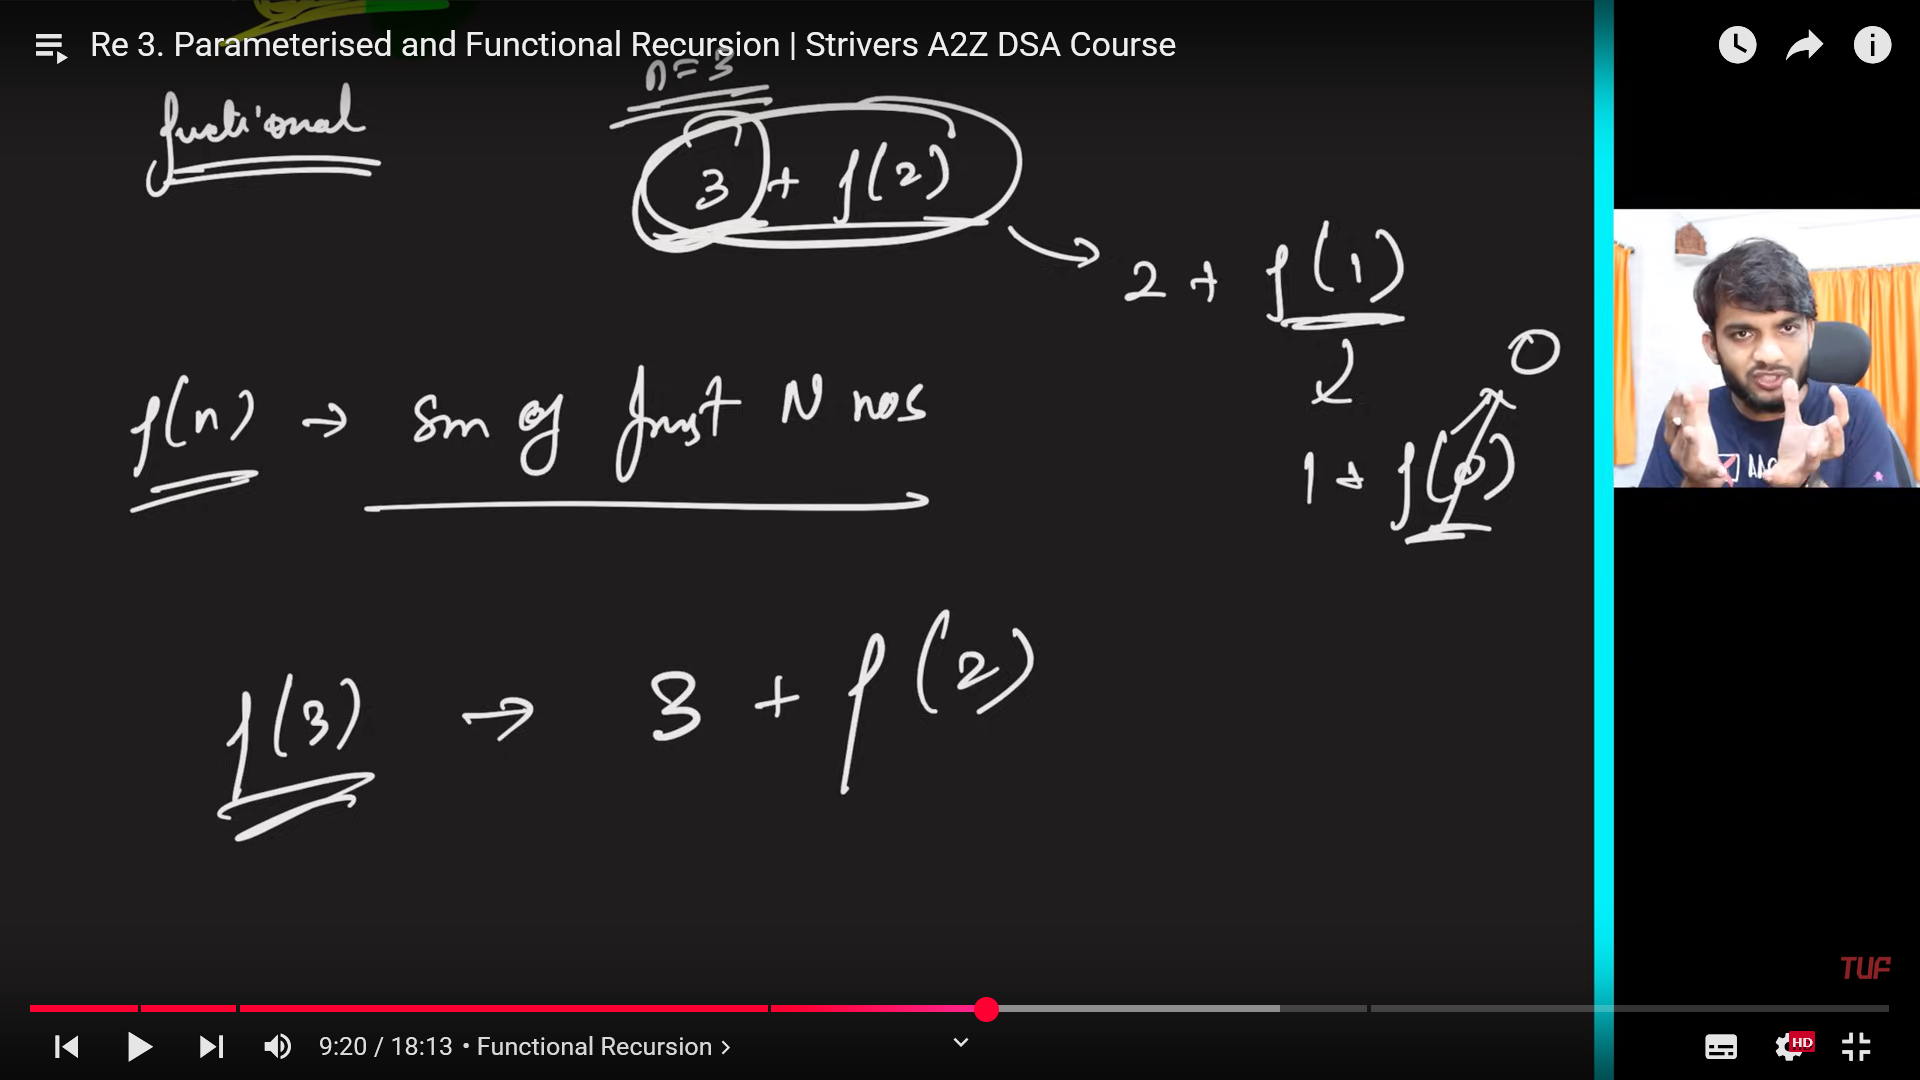 Re 3. Parameterised and Functional Recursion | Strivers A2Z DSA Course
n=3
fuctional
3 + f(2)
2 + f(1)
0
f(n) → Sm of first N nos
1 + f(0)
f(3) → 3 + f(2)
TUF
9:20 / 18:13 • Functional Recursion >
HD